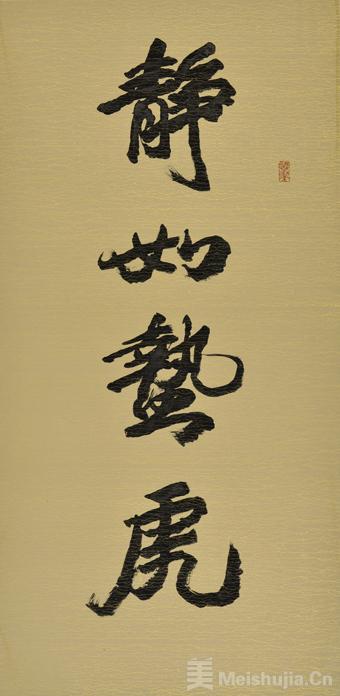 静如蛰虎
美 Meishujia.Cn